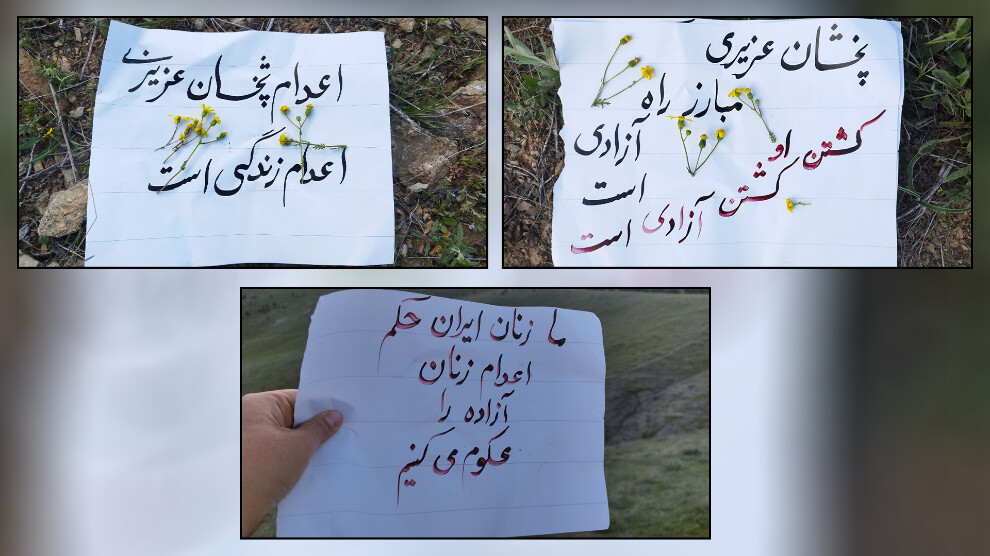 اعدام پخشان عزیزی
اعدام زندگی است
پخشان عزیزی
مبارز راه
آزادی
است
کشتن او
کشتن
آزادی است
ما زنان ایران حکم
اعدام زنان
آزاده را
محکوم می کنیم